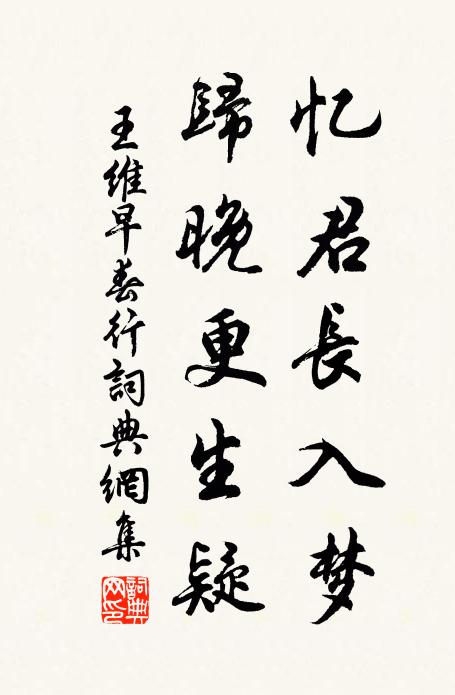 忆君长入梦
歸晚更生疑
王维早春行詞典網集
詞典網印